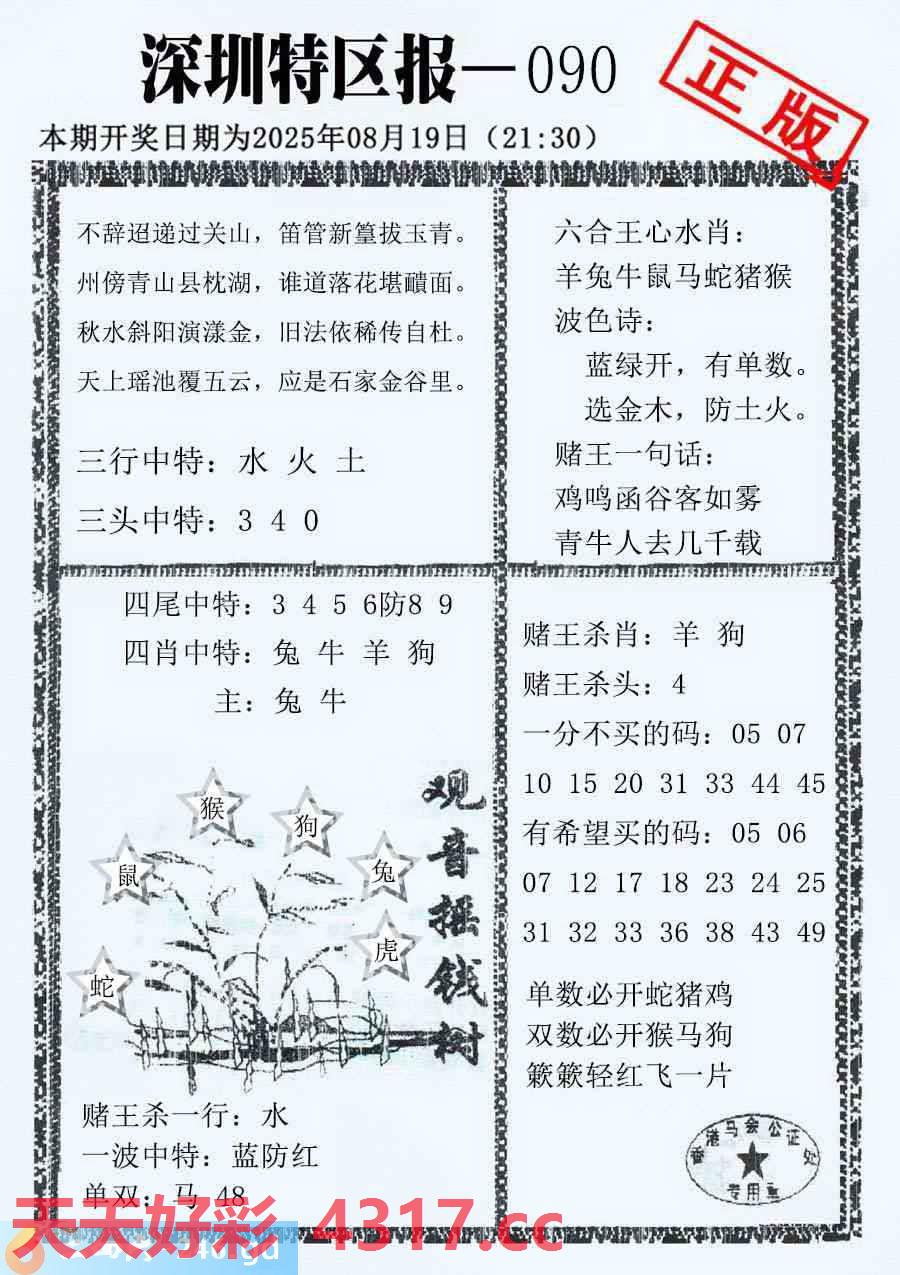 深圳特区报—090
正版
本期开奖日期为2025年08月19日（21:30）
不辞迢递过关山，笛管新篁拔玉青。
州傍青山县枕湖，谁道落花堪靧面。
秋水斜阳演漾金，旧法依稀传自杜。
天上瑶池覆五云，应是石家金谷里。
三行中特：水 火 土
三头中特：3 4 0
六合王心水肖：
羊兔牛鼠马蛇猪猴
波色诗：
蓝绿开，有单数。
选金木，防土火。
赌王一句话：
鸡鸣函谷客如雾
青牛人去几千载
四尾中特：3 4 5 6防8 9
四肖中特：兔 牛 羊 狗
主：兔 牛
猴
狗
鼠
兔
虎
蛇
观音摇钱树
赌王杀一行：水
一波中特：蓝防红
单双：马 48
赌王杀肖：羊 狗
赌王杀头：4
一分不买的码：05 07
10 15 20 31 33 44 45
有希望买的码：05 06
07 12 17 18 23 24 25
31 32 33 36 38 43 49
单数必开蛇猪鸡
双数必开猴马狗
簌簌轻红飞一片
香港马会公证处
专用章
天天好彩 4317.cc